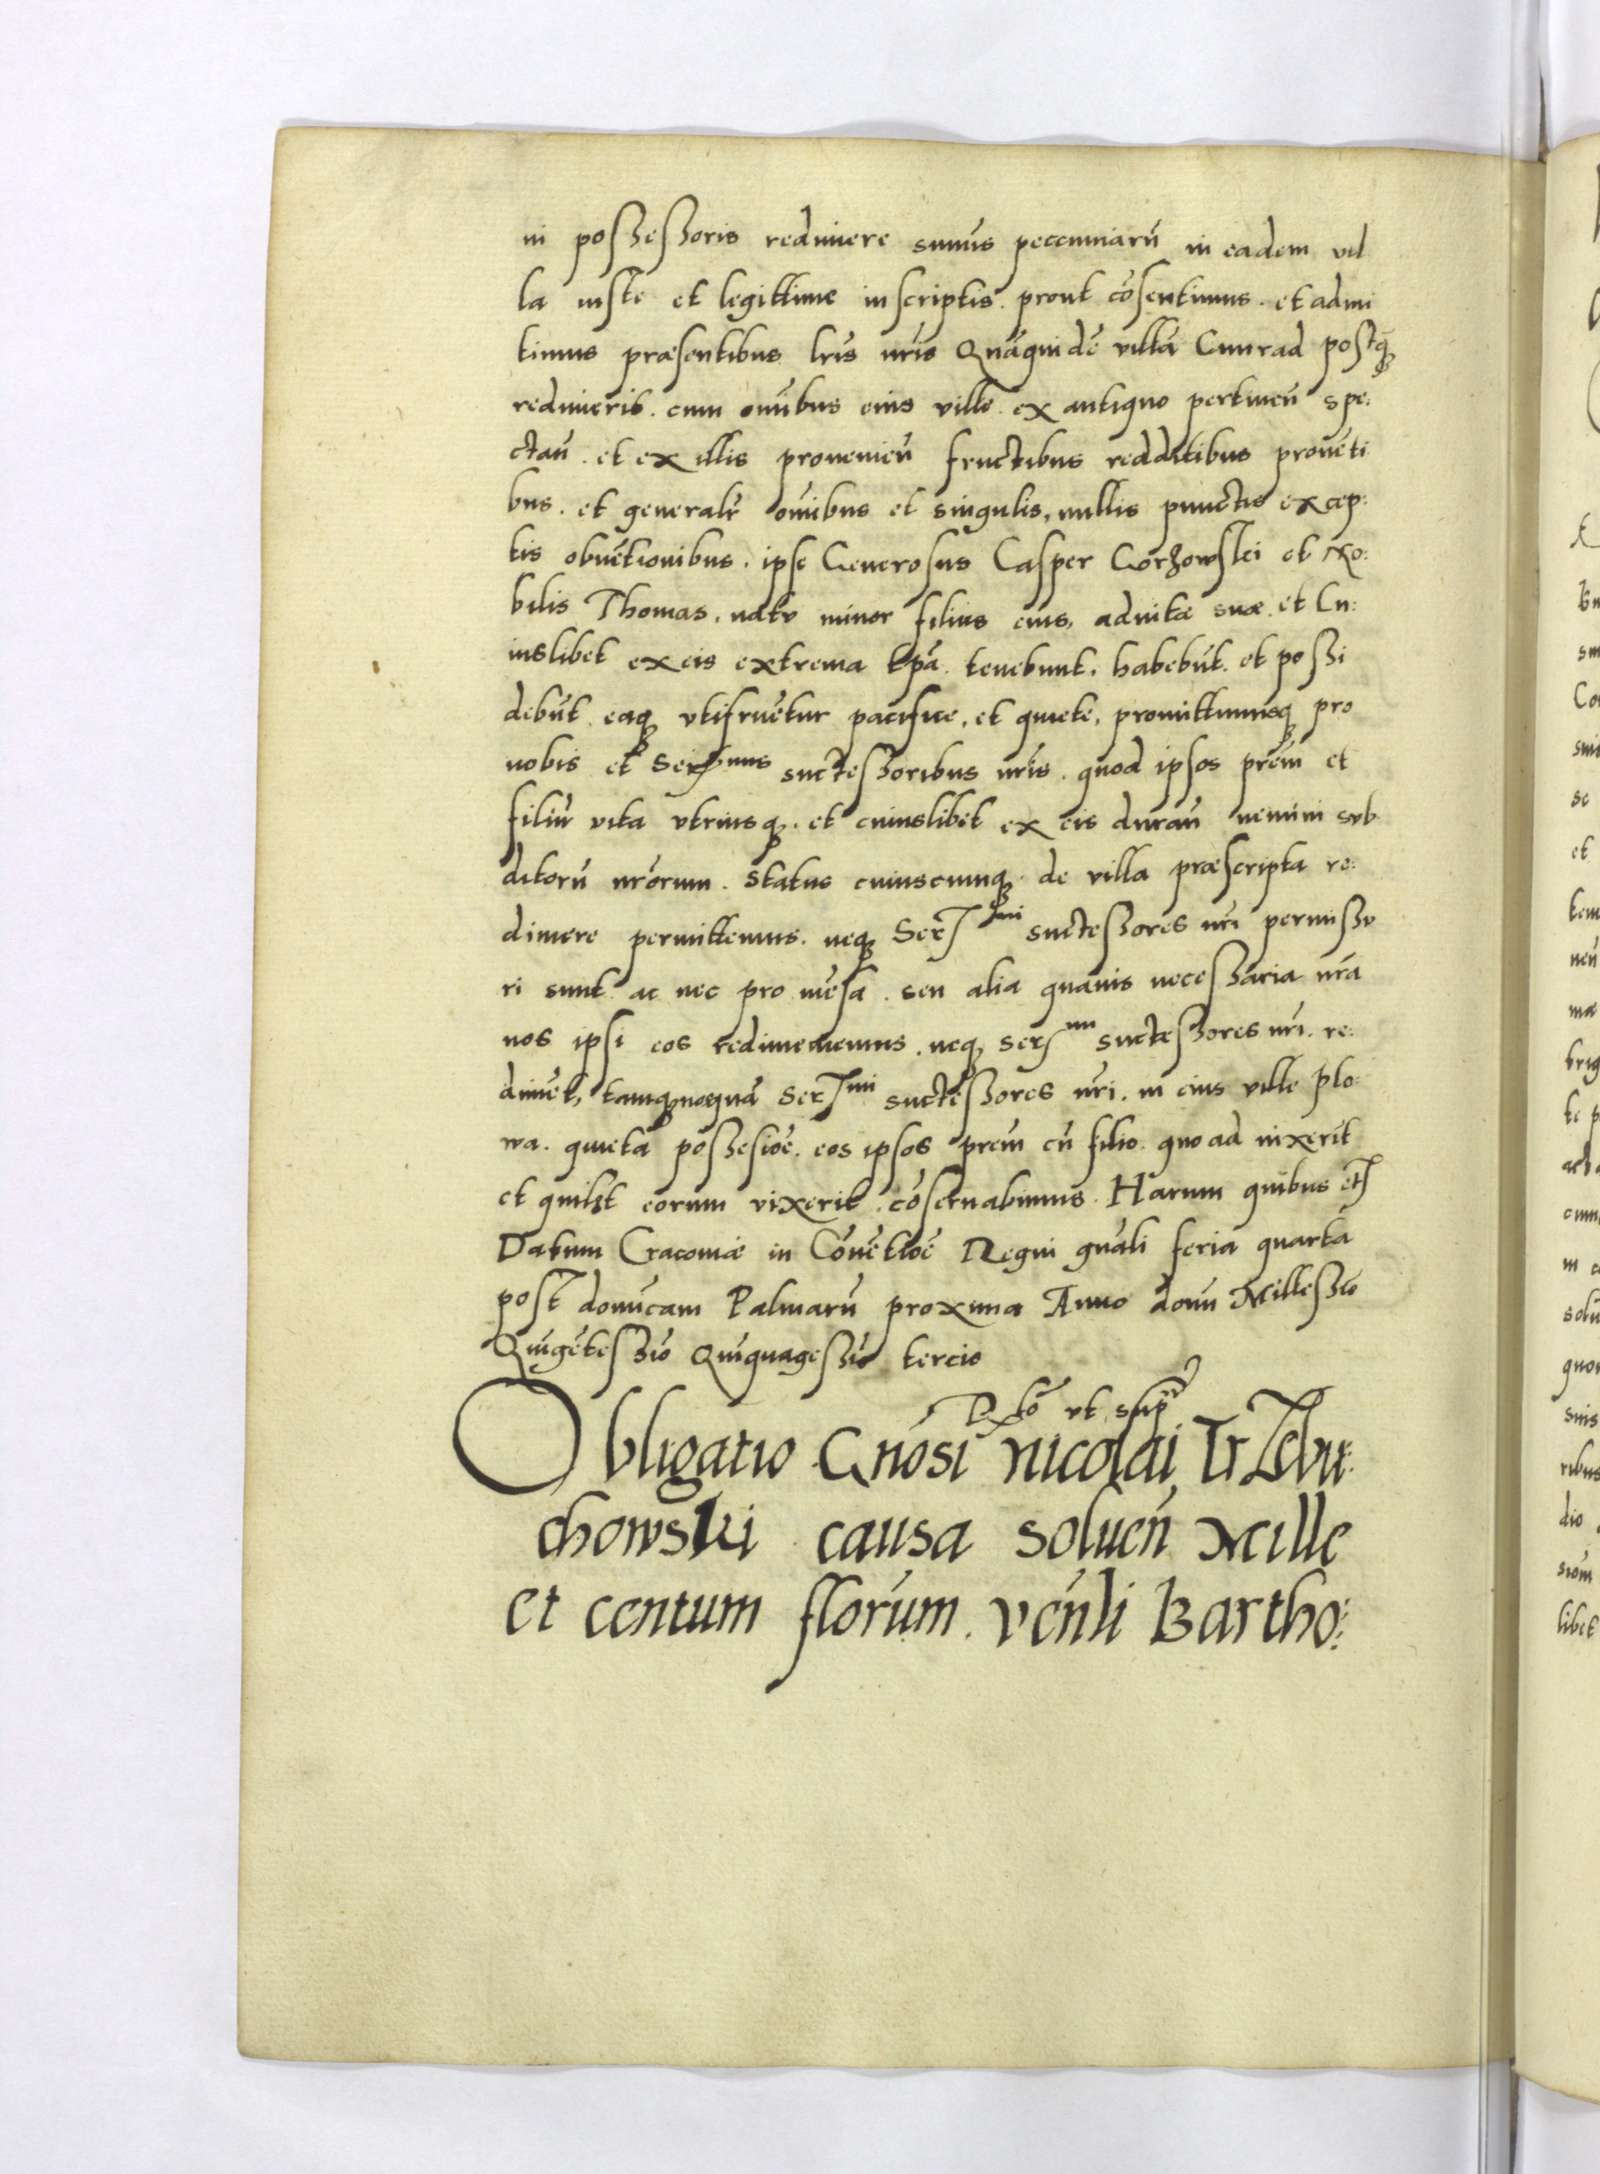 ni possessoris redimere sumus peccuniarū in eadem vil
la iuste et legittime inscriptis. prout cōsentimus. et admi
timus præsentibus lrīs nrīs Quāquidē villā Cunrad postq̄
redimerit. cum omībus eius ville. ex antiquo pertineñ spe:
ctañ. et ex illis prouenieñ fructibus redditibus prouēti
bus. et generalr̄ omībus et singulis, nullis punctis excep:
tis obuētionibus. ipse Generosus Casper Gorzowskei et No:
bilis Thomas. natu minor filius eius, aduitæ suæ. et Cu:
iuslibet ex eis extrema tpā. tenebunt, habebūt. et possi
debūt. eaq; vtifruētur pacifice, et quiete, promittimusq; pro
nobis et Serᵐⁱˢ successoribus nrīs. quod ipsos prēm et
filiū vita vtriusq;. et cuiuslibet ex eis durañ nemini sub
ditorū nrōrum. status cuiuscumq; de villa præscripta re:
dimere permittemus. neq; Serᵐⁱ successores nrī permissu
ri sunt. ac nec pro mēsa. seu alia quauis necessaria nrā
nos ipsi eos redimememus. neq; Serᵐⁱ successores nrī. re:
dimēt, Serᵐⁱ successores nrī. in eius ville Plo:
wa. quieta possesiōe. eos ipsos prēm cū filio. quoad uixerīt
et quilbt eorum vixerit. cōseruabimus. Harum quibus etc
Datum Cracouiæ in Cōuētiōe Regni gnāli feria quarta
post domīcam Palmarū proxima Anno domī Millessīo
Quīgētessīo Quīquagessīo tercio
Rtō vt supr
Obligatio Gnōsi Nicolai Trzebu:
chowski causa solueñ Mille
et centum florūm. Venli Bartho: